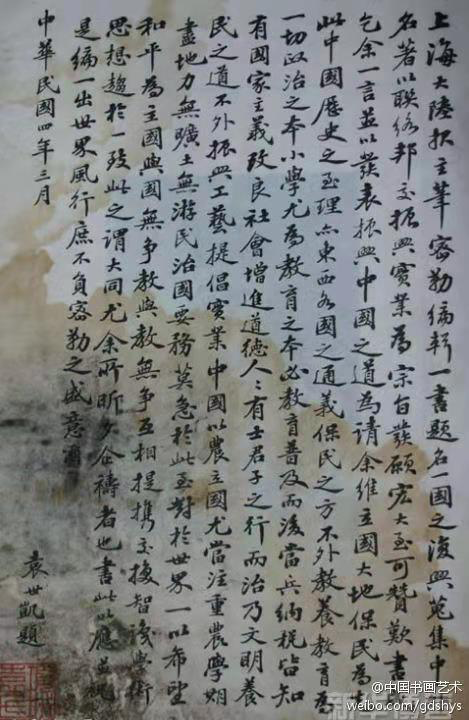 上海大陸报主筆密勒編輯一書題名一國之復興蒐集中
名著以聯络邦交振興實業為宗旨發願宏大至可贊歎書
乞余一言並以發表振興中國之道為請余維立國大地保民為
此中國歷史之至理亦東西各國之通義保民之方不外教養教育為
一切政治之本小學尤為教育之本必教育普及而後當兵納税皆知
有國家主義改良社會增進道德人〻有士君子之行而治乃文明養
民之道不外振興工藝提倡實業中國以農立國尤當注重農學期
盡地力無曠土無游民治國要務莫急於此至對於世界一以希望
和平為主國與國無争教與教無争互相提携交換智識學術
思想趨於一致此之謂大同尤余所昕夕企禱者也書此以應並祝
是編一出世界風行庶不負密勒之盛意爾
中華民國四年三月
袁世凱題
@中国书画艺术
weibo.com/gdshys